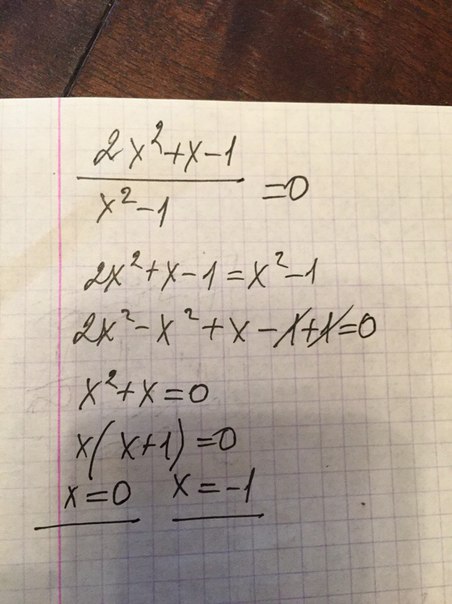 2x²+x-1
x²-1
=0
2x²+x-1=x²-1
2x²-x²+x-1+1=0
x²+x=0
x(x+1)=0
x=0 x=-1